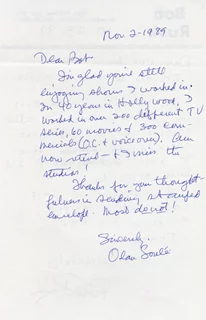 Nov 2-1989
Dear Bob
I'm glad you're still
enjoying shows I worked in.
In 40 years in Hollywood, I
worked in over 200 different TV
series, 60 movies & 300 Com-
mercials (O.C. & voice over). Am
now retired - & I miss the
studios!
Thanks for your thought-
fulness in sending stamped
envelope. Most don't!
Sincerely,
Olan Soulé